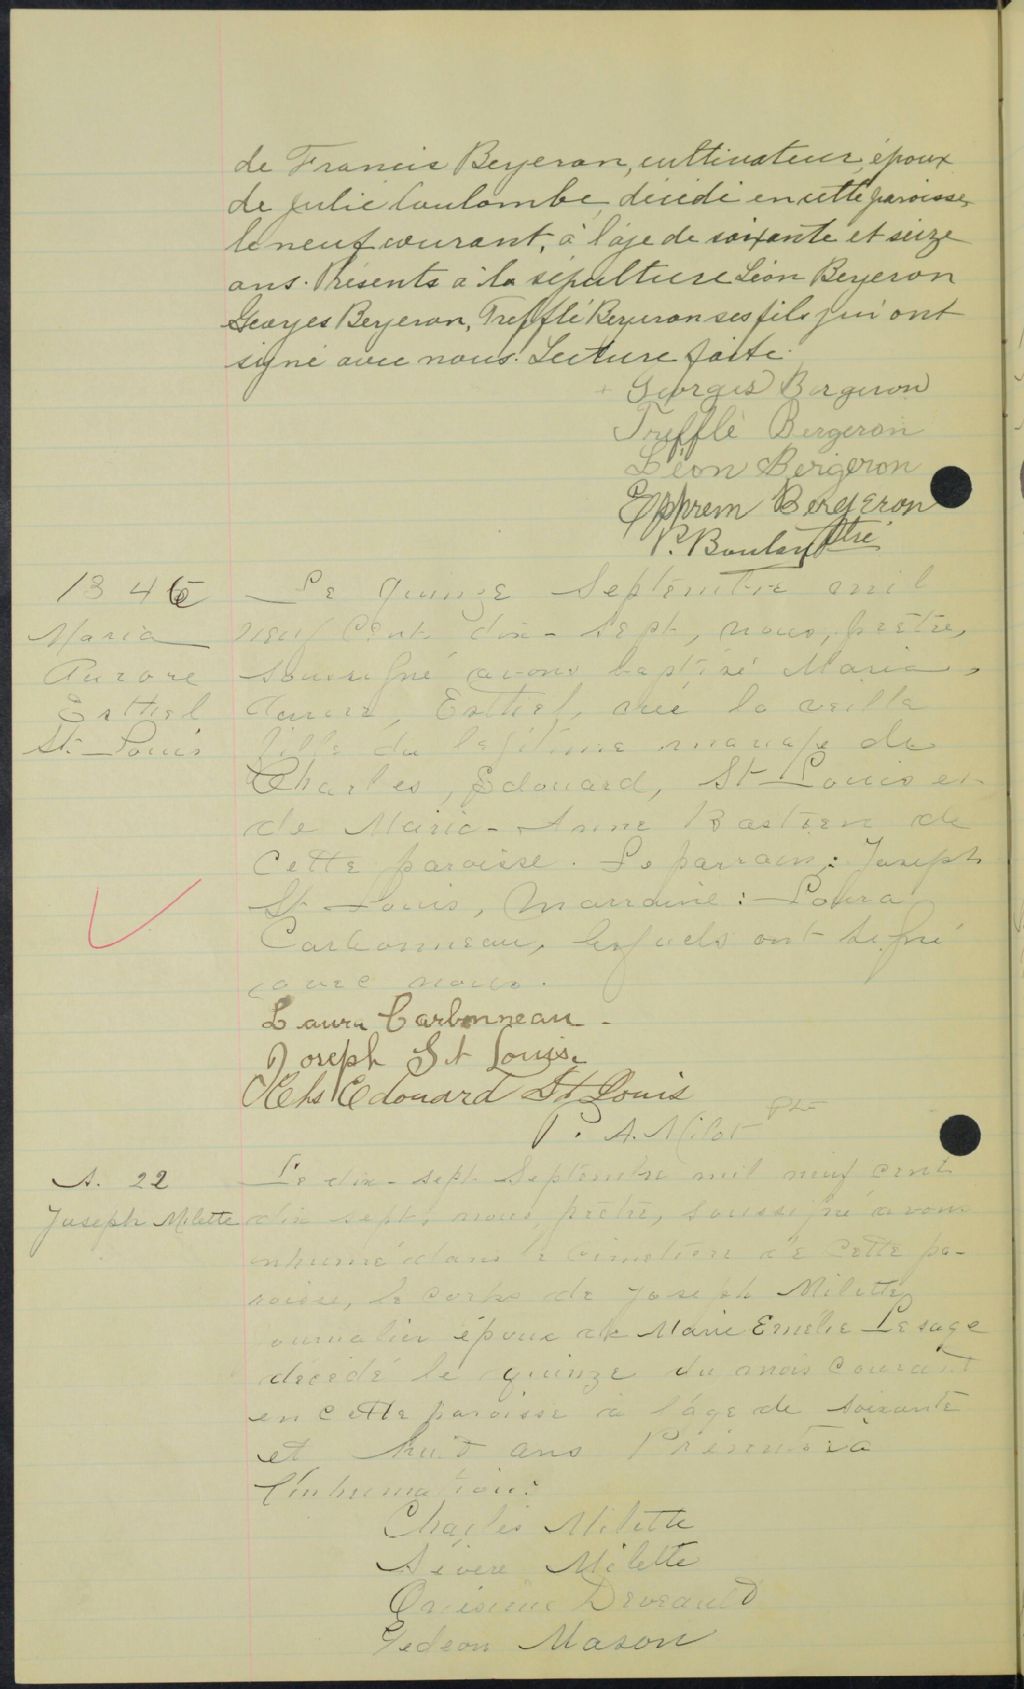 de Francis Bergeron, cultivateur, époux
de Julie Coulombe, décédé en cette paroisse,
le neuf courant, à l'âge de soixante et seize
ans. Présents à la sépulture Léon Bergeron
Georges Bergeron, Trefflé Bergeron ses fils qui ont
signé avec nous. Lecture faite.
Georges Bergeron
Trefflé Bergeron
Léon Bergeron
Epprem Bergeron
P. Boulay Ptre
B 46
Maria
Aurore
Esthiel
St-Louis
Le quinze Septembre mil
neuf cent dix-sept, nous, prêtre,
soussigné avons baptisé Maria,
Aurore, Esthiel, née la veille
fille du légitime mariage de
Charles, Edouard, St-Louis et
de Maria-Anne Bastien de
cette paroisse. Le parrain: Joseph
St-Louis, Marraine: Laura
Carbonneau, lesquels ont signé
avec nous.
Laura Carbonneau
Joseph St Louis
Chs Edouard St Louis
P. A. Milot ptr
S. 22
Joseph Milette
Le dix-sept Septembre mil neuf cent
dix sept, nous, prêtre, soussigné avons
inhumé dans le cimetière de cette pa-
roisse, le corps de Joseph Milette
journalier époux de Marie Emélie Lesage
décédé le quinze du mois courant
en cette paroisse à l'âge de soixante
et huit ans Présents à
l'inhumation:
Charles Milette
Sévère Milette
Onésime Deveault
Gedeon Mason